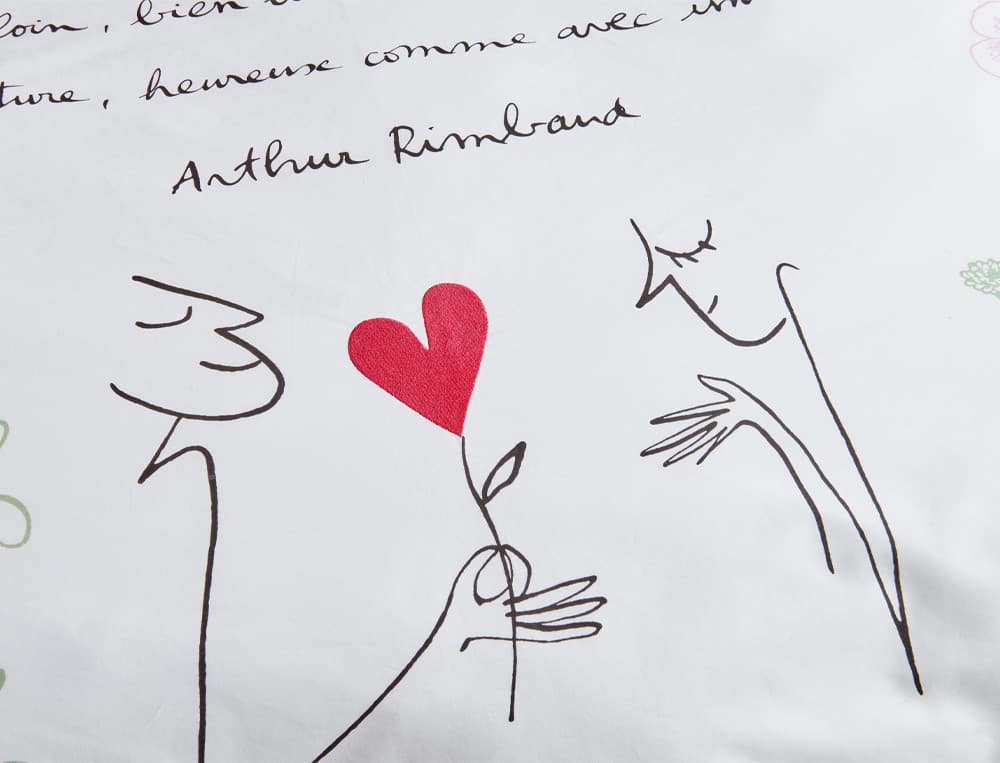 loin, bien
ture, heureux comme avec un
Arthur Rimbaud